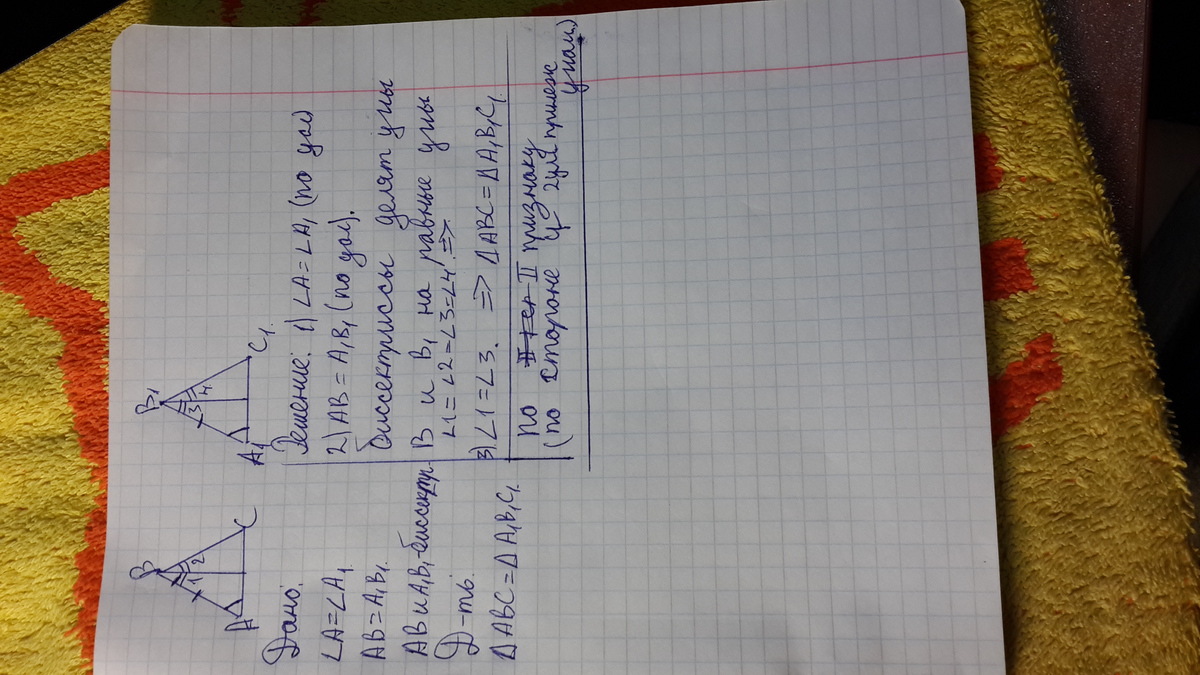 B
1 2
A
C
B₁
3 4
A₁
C₁.
Дано:
∠A=∠A₁.
AB=A₁B₁.
AB и A₁B₁-биссектр.
Д-ть.
ΔABC=ΔA₁B₁C₁.
Решение: 1) ∠A=∠A₁ (по усл)
2) AB=A₁B₁ (по усл).
биссектриссы делят углы
B и B₁ на равные углы
∠1=∠2=∠3=∠4. =>
3) ∠1=∠3. => ΔABC=ΔA₁B₁C₁.
по II признаку
(по стороне и 2ум прилеж
углам)